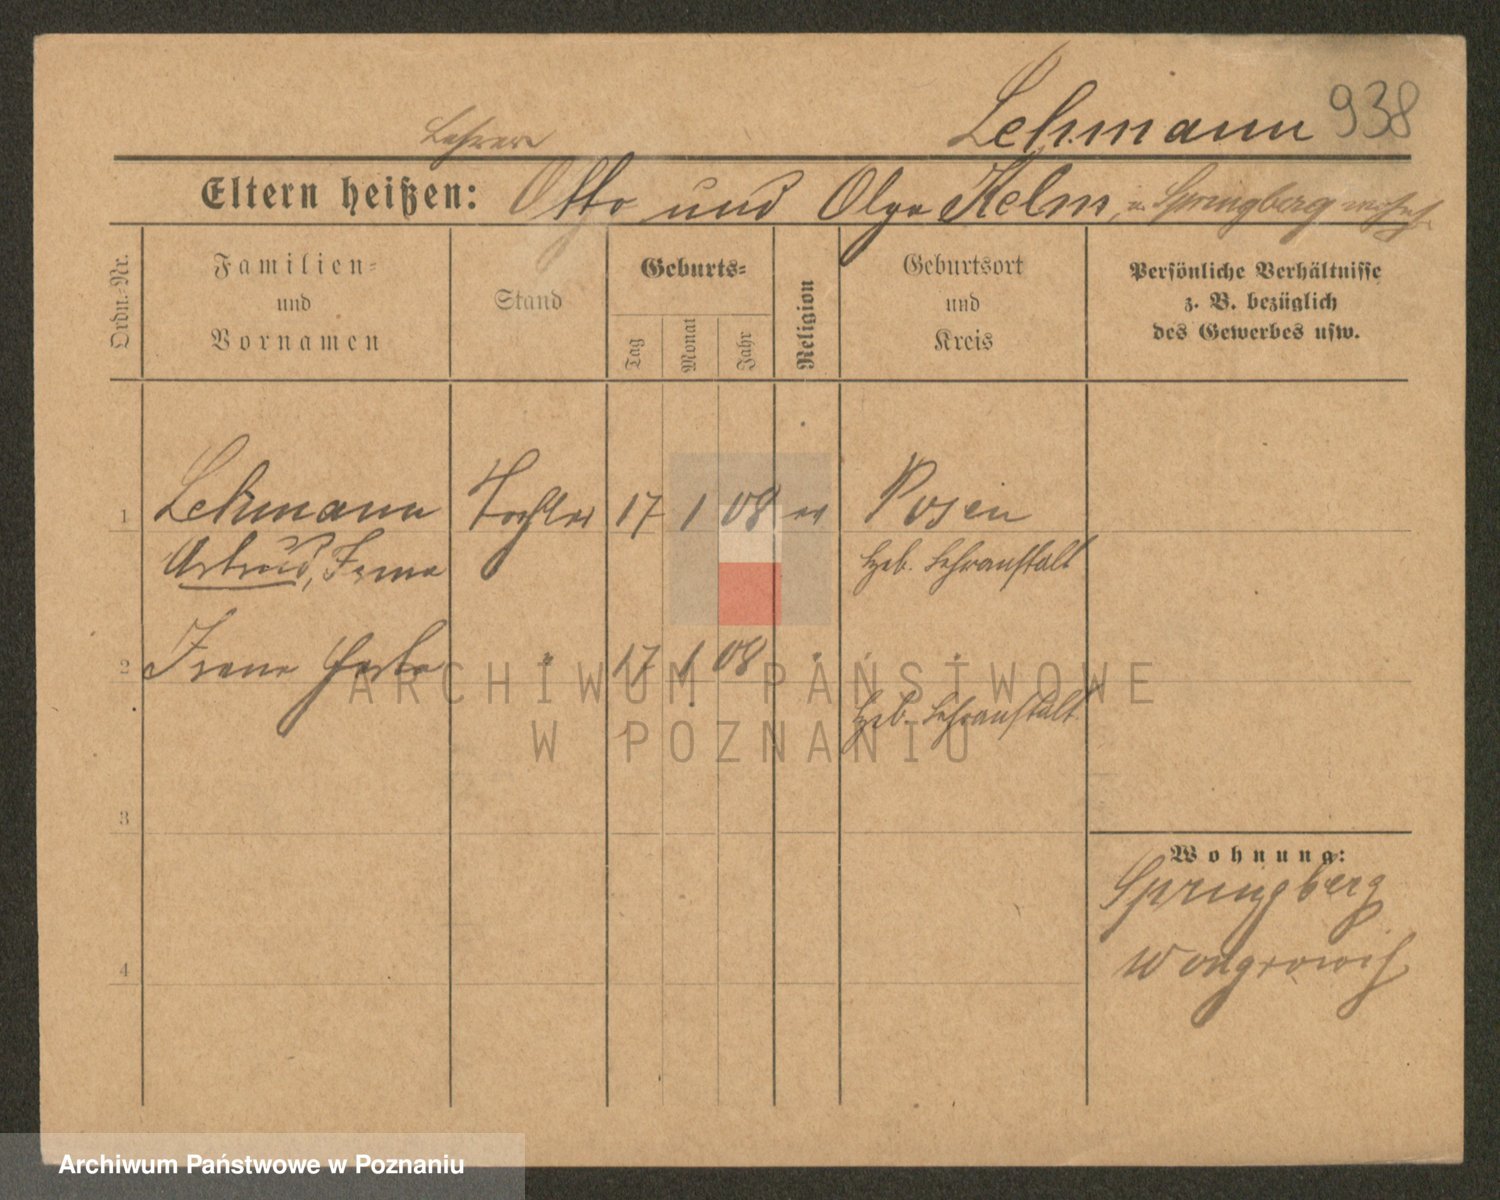 Lehmann 938
Lehrer
Eltern heißen: Otto und Olga Helm, in Springberg wohnh.
Ordn.-Nr.
Familien-
und
Vornamen
Stand
Geburts-
Tag
Monat
Jahr
Religion
Geburtsort
und
Kreis
Persönliche Verhältnisse
z. B. bezüglich
des Gewerbes usw.
1 Lehmann Tochter 17 1 08 ev Posen
Astrid, Irma
Heb. Lehranstalt
2 Irene " 17 1 08 " " "
Heb. Lehranstalt
3
4
Wohnung:
Springberg
Wongrowitz
ARCHIWUM PAŃSTWOWE
W POZNANIU
Archiwum Państwowe w Poznaniu